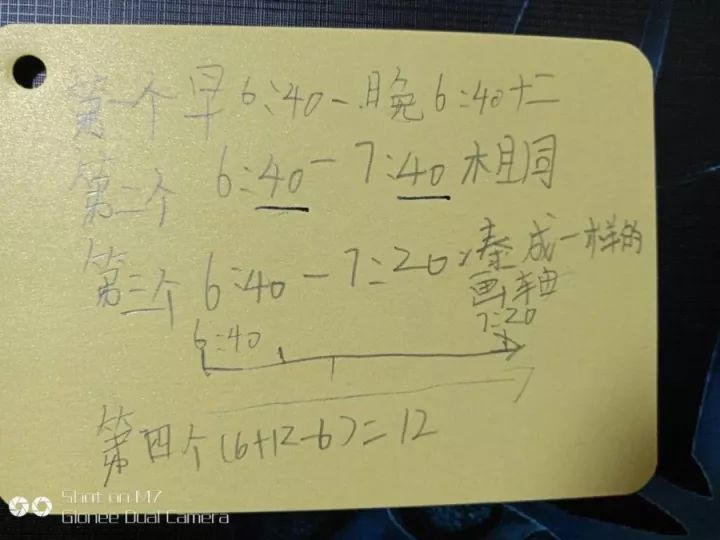 第一个 早6:40-晚6:40十二
第二个 6:40-7:40 相同
第三个 6:40-7:20 变成一样的
画轴
6:40 7:20
第四个(6+12-6)=12
Shot on M7
Gionee Dual Camera